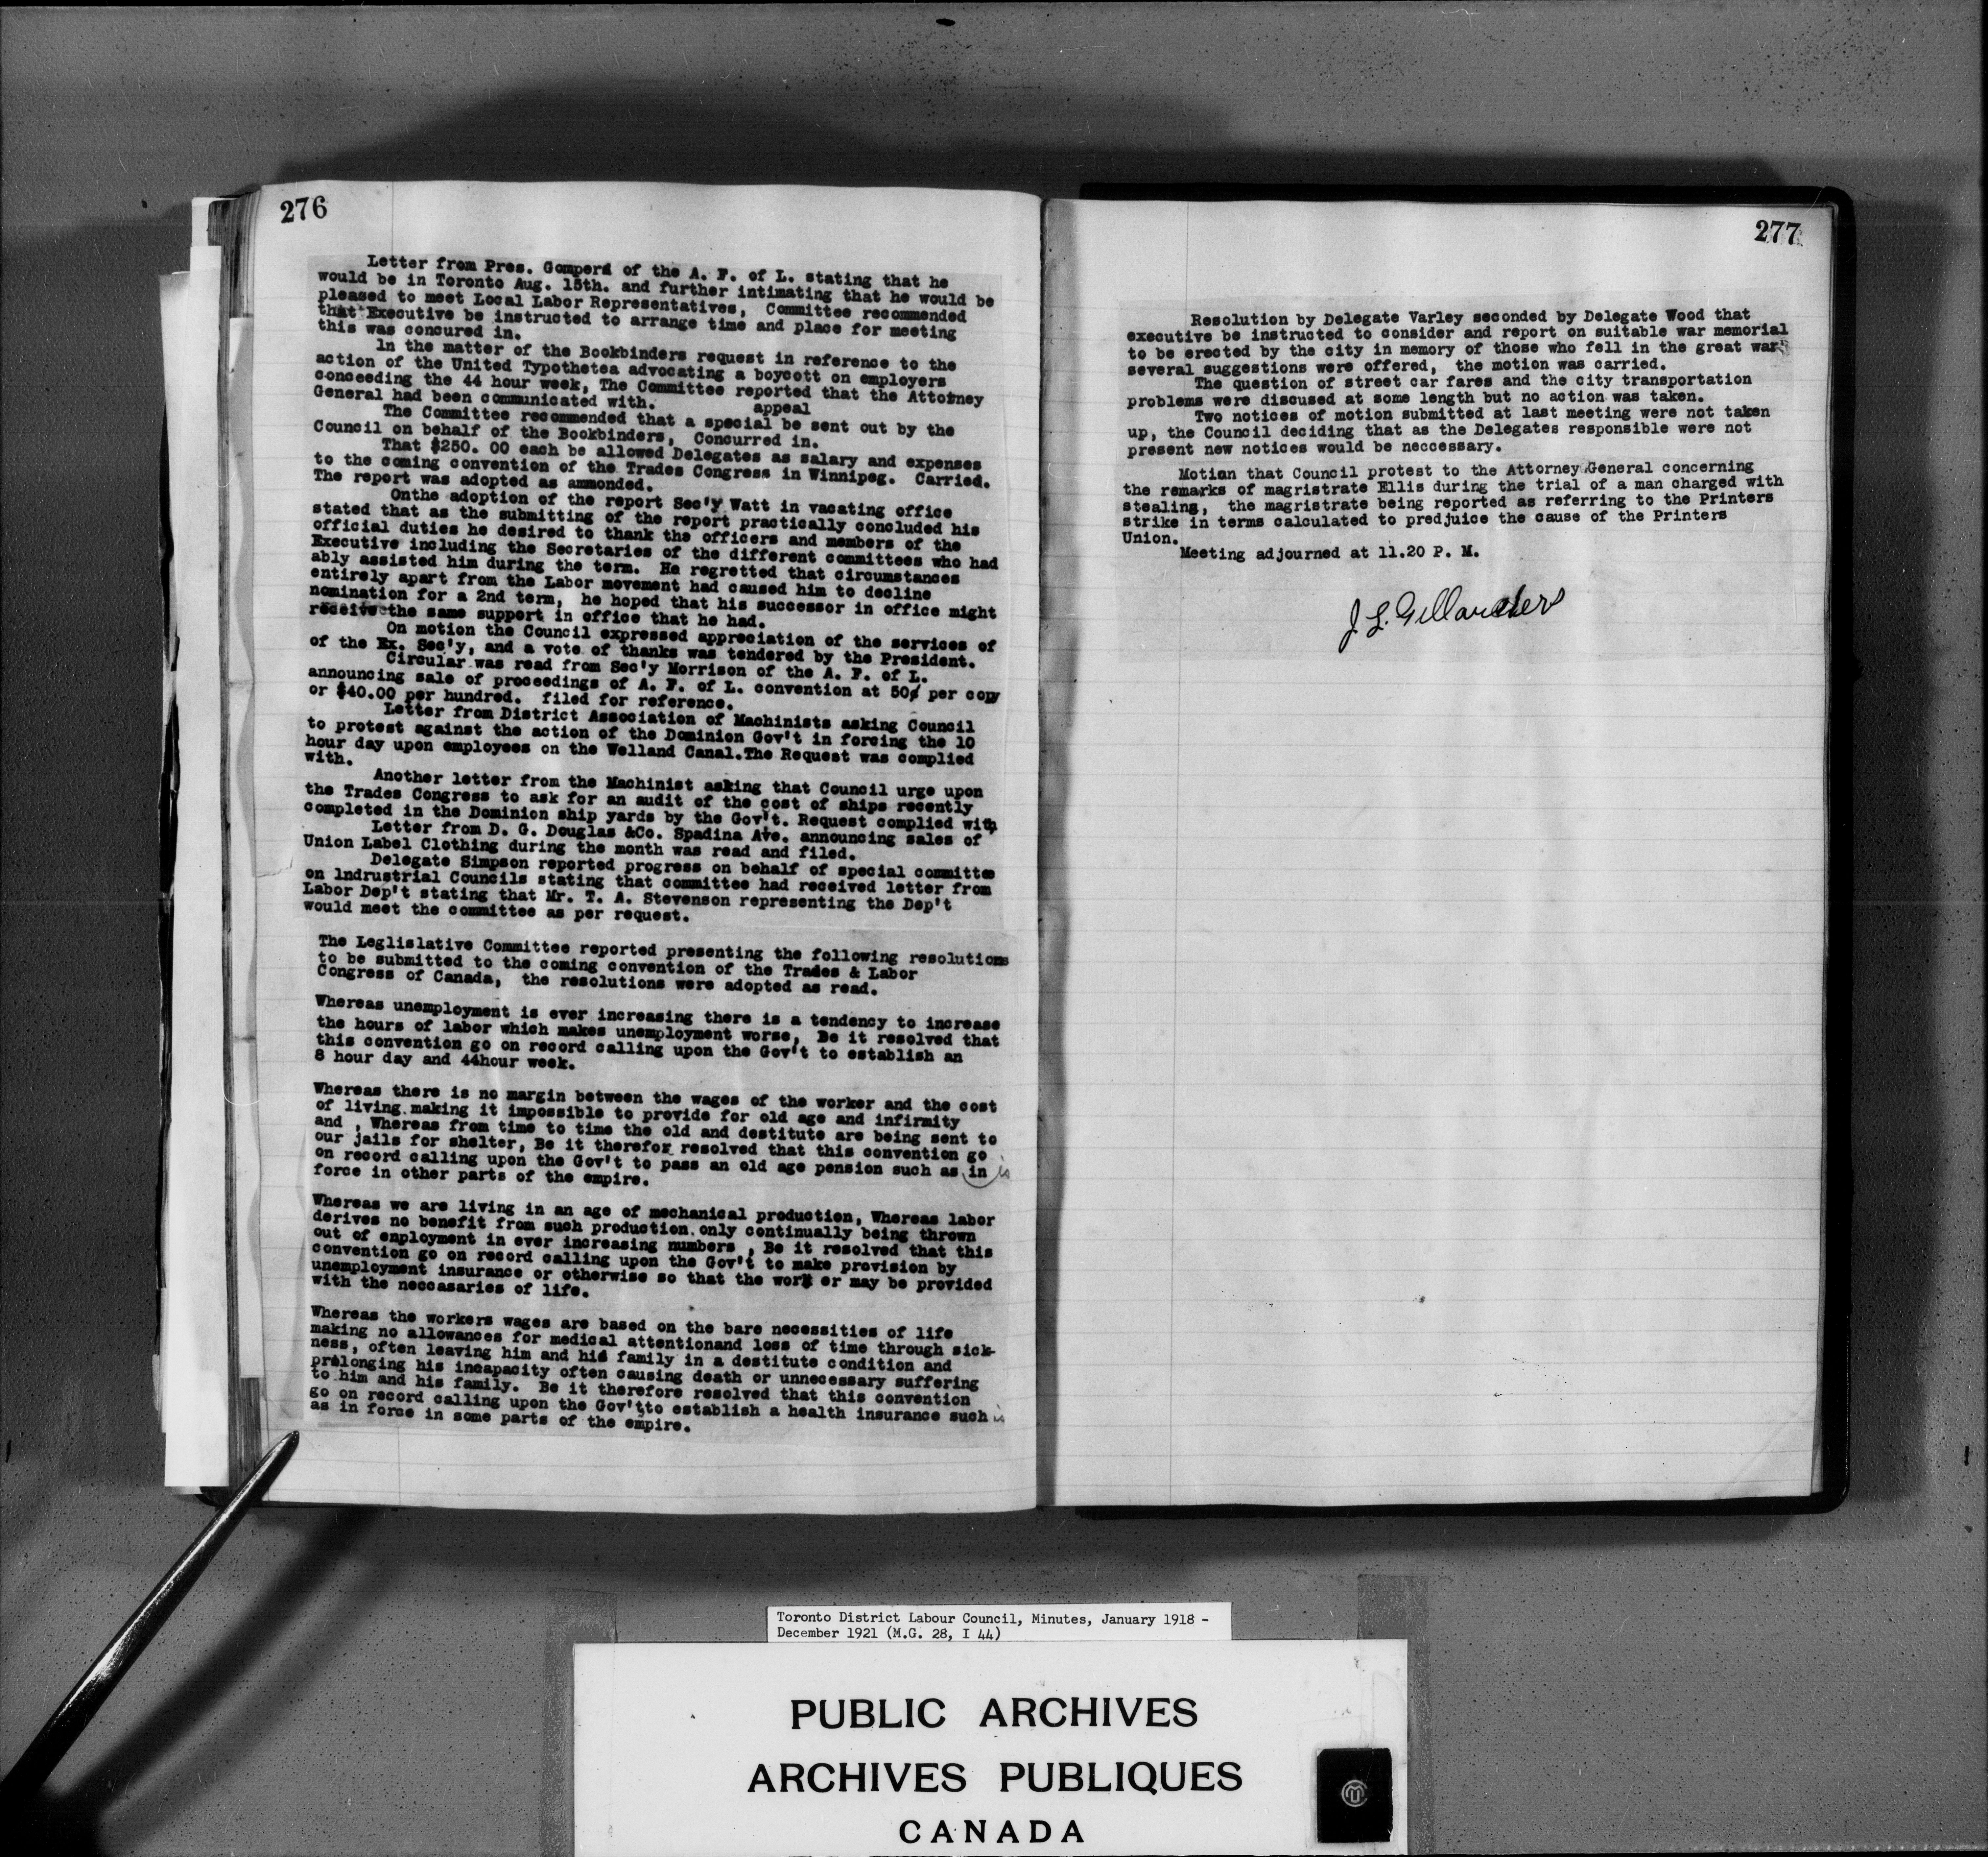 276
Letter from Pres. Gompers of the A. F. of L. stating that he
would be in Toronto Aug. 15th. and further intimating that he would be
pleased to meet Local Labor Representatives, Committee recommended
that Executive be instructed to arrange time and place for meeting
this was concured in.
ln the matter of the Bookbinders request in reference to the
action of the United Typothetea advocating a boycott on employers
conceeding the 44 hour week, The Committee reported that the Attorney
General had been communicated with.
appeal
The Committee recommended that a special be sent out by the
Council on behalf of the Bookbinders, Concurred in.
That $250. 00 each be allowed Delegates as salary and expenses
to the coming convention of the Trades Congress in Winnipeg. Carried.
The report was adopted as ammonded.
Onthe adoption of the report Sec'y Watt in vacating office
stated that as the submitting of the report practically concluded his
official duties he desired to thank the officers and members of the
Executive including the Secretaries of the different committees who had
ably assisted him during the term. He regretted that circumstances
entirely apart from the Labor movement had caused him to decline
nomination for a 2nd term, he hoped that his successor in office might
receive the same support in office that he had.
On motion the Council expressed appreciation of the services of
of the Ex. Sec'y, and a vote of thanks was tendered by the President.
Circular was read from Sec'y Morrison of the A. F. of L.
announcing sale of proceedings of A. F. of L. convention at 50¢ per copy
or $40.00 per hundred. filed for reference.
Letter from District Association of Machinists asking Council
to protest against the action of the Dominion Gov't in forcing the 10
hour day upon employees on the Welland Canal.The Request was complied
with.
Another letter from the Machinist asking that Council urge upon
the Trades Congress to ask for an audit of the cost of ships recently
completed in the Dominion ship yards by the Gov't. Request complied with
Letter from D. G. Douglas &Co. Spadina Ave. announcing sales of
Union Label Clothing during the month was read and filed.
Delegate Simpson reported progress on behalf of special committee
on lndrustrial Councils stating that committee had received letter from
Labor Dep't stating that Mr. T. A. Stevenson representing the Dep't
would meet the committee as per request.
The Leglislative Committee reported presenting the following resolutions
to be submitted to the coming convention of the Trades & Labor
Congress of Canada, the resolutions were adopted as read.
Whereas unemployment is ever increasing there is a tendency to increase
the hours of labor which makes unemployment worse, Be it resolved that
this convention go on record calling upon the Gov't to establish an
8 hour day and 44hour week.
Whereas there is no margin between the wages of the worker and the cost
of living making it impossible to provide for old age and infirmity
and , Whereas from time to time the old and destitute are being sent to
our jails for shelter, Be it therefor resolved that this convention go
on record calling upon the Gov't to pass an old age pension such as in is
force in other parts of the empire.
Whereas we are living in an age of mechanical production, Whereas labor
derives no benefit from such production only continually being thrown
out of enployment in ever increasing numbers , Be it resolved that this
convention go on record calling upon the Gov't to make provision by
unemployment insurance or otherwise so that the work er may be provided
with the neccasaries of life.
Whereas the workers wages are based on the bare necessities of life
making no allowances for medical attentionand loss of time through sick-
ness, often leaving him and his family in a destitute condition and
prolonging his incapacity often causing death or unnecessary suffering
to him and his family. Be it therefore resolved that this convention
go on record calling upon the Gov't to establish a health insurance such is
as in force in some parts of the empire.
277
Resolution by Delegate Varley seconded by Delegate Wood that
executive be instructed to consider and report on suitable war memorial
to be erected by the city in memory of those who fell in the great war
several suggestions were offered, the motion was carried.
The question of street car fares and the city transportation
problems were discused at some length but no action was taken.
Two notices of motion submitted at last meeting were not taken
up, the Council deciding that as the Delegates responsible were not
present new notices would be neccessary.
Motian that Council protest to the Attorney General concerning
the remarks of magristrate Ellis during the trial of a man charged with
stealing, the magristrate being reported as referring to the Printers
strike in terms calculated to predjuice the cause of the Printers
Union.
Meeting adjourned at 11.20 P. M.
J. L. Gillanders
Toronto District Labour Council, Minutes, January 1918 -
December 1921 (M.G. 28, I 44)
PUBLIC ARCHIVES
ARCHIVES PUBLIQUES
CANADA